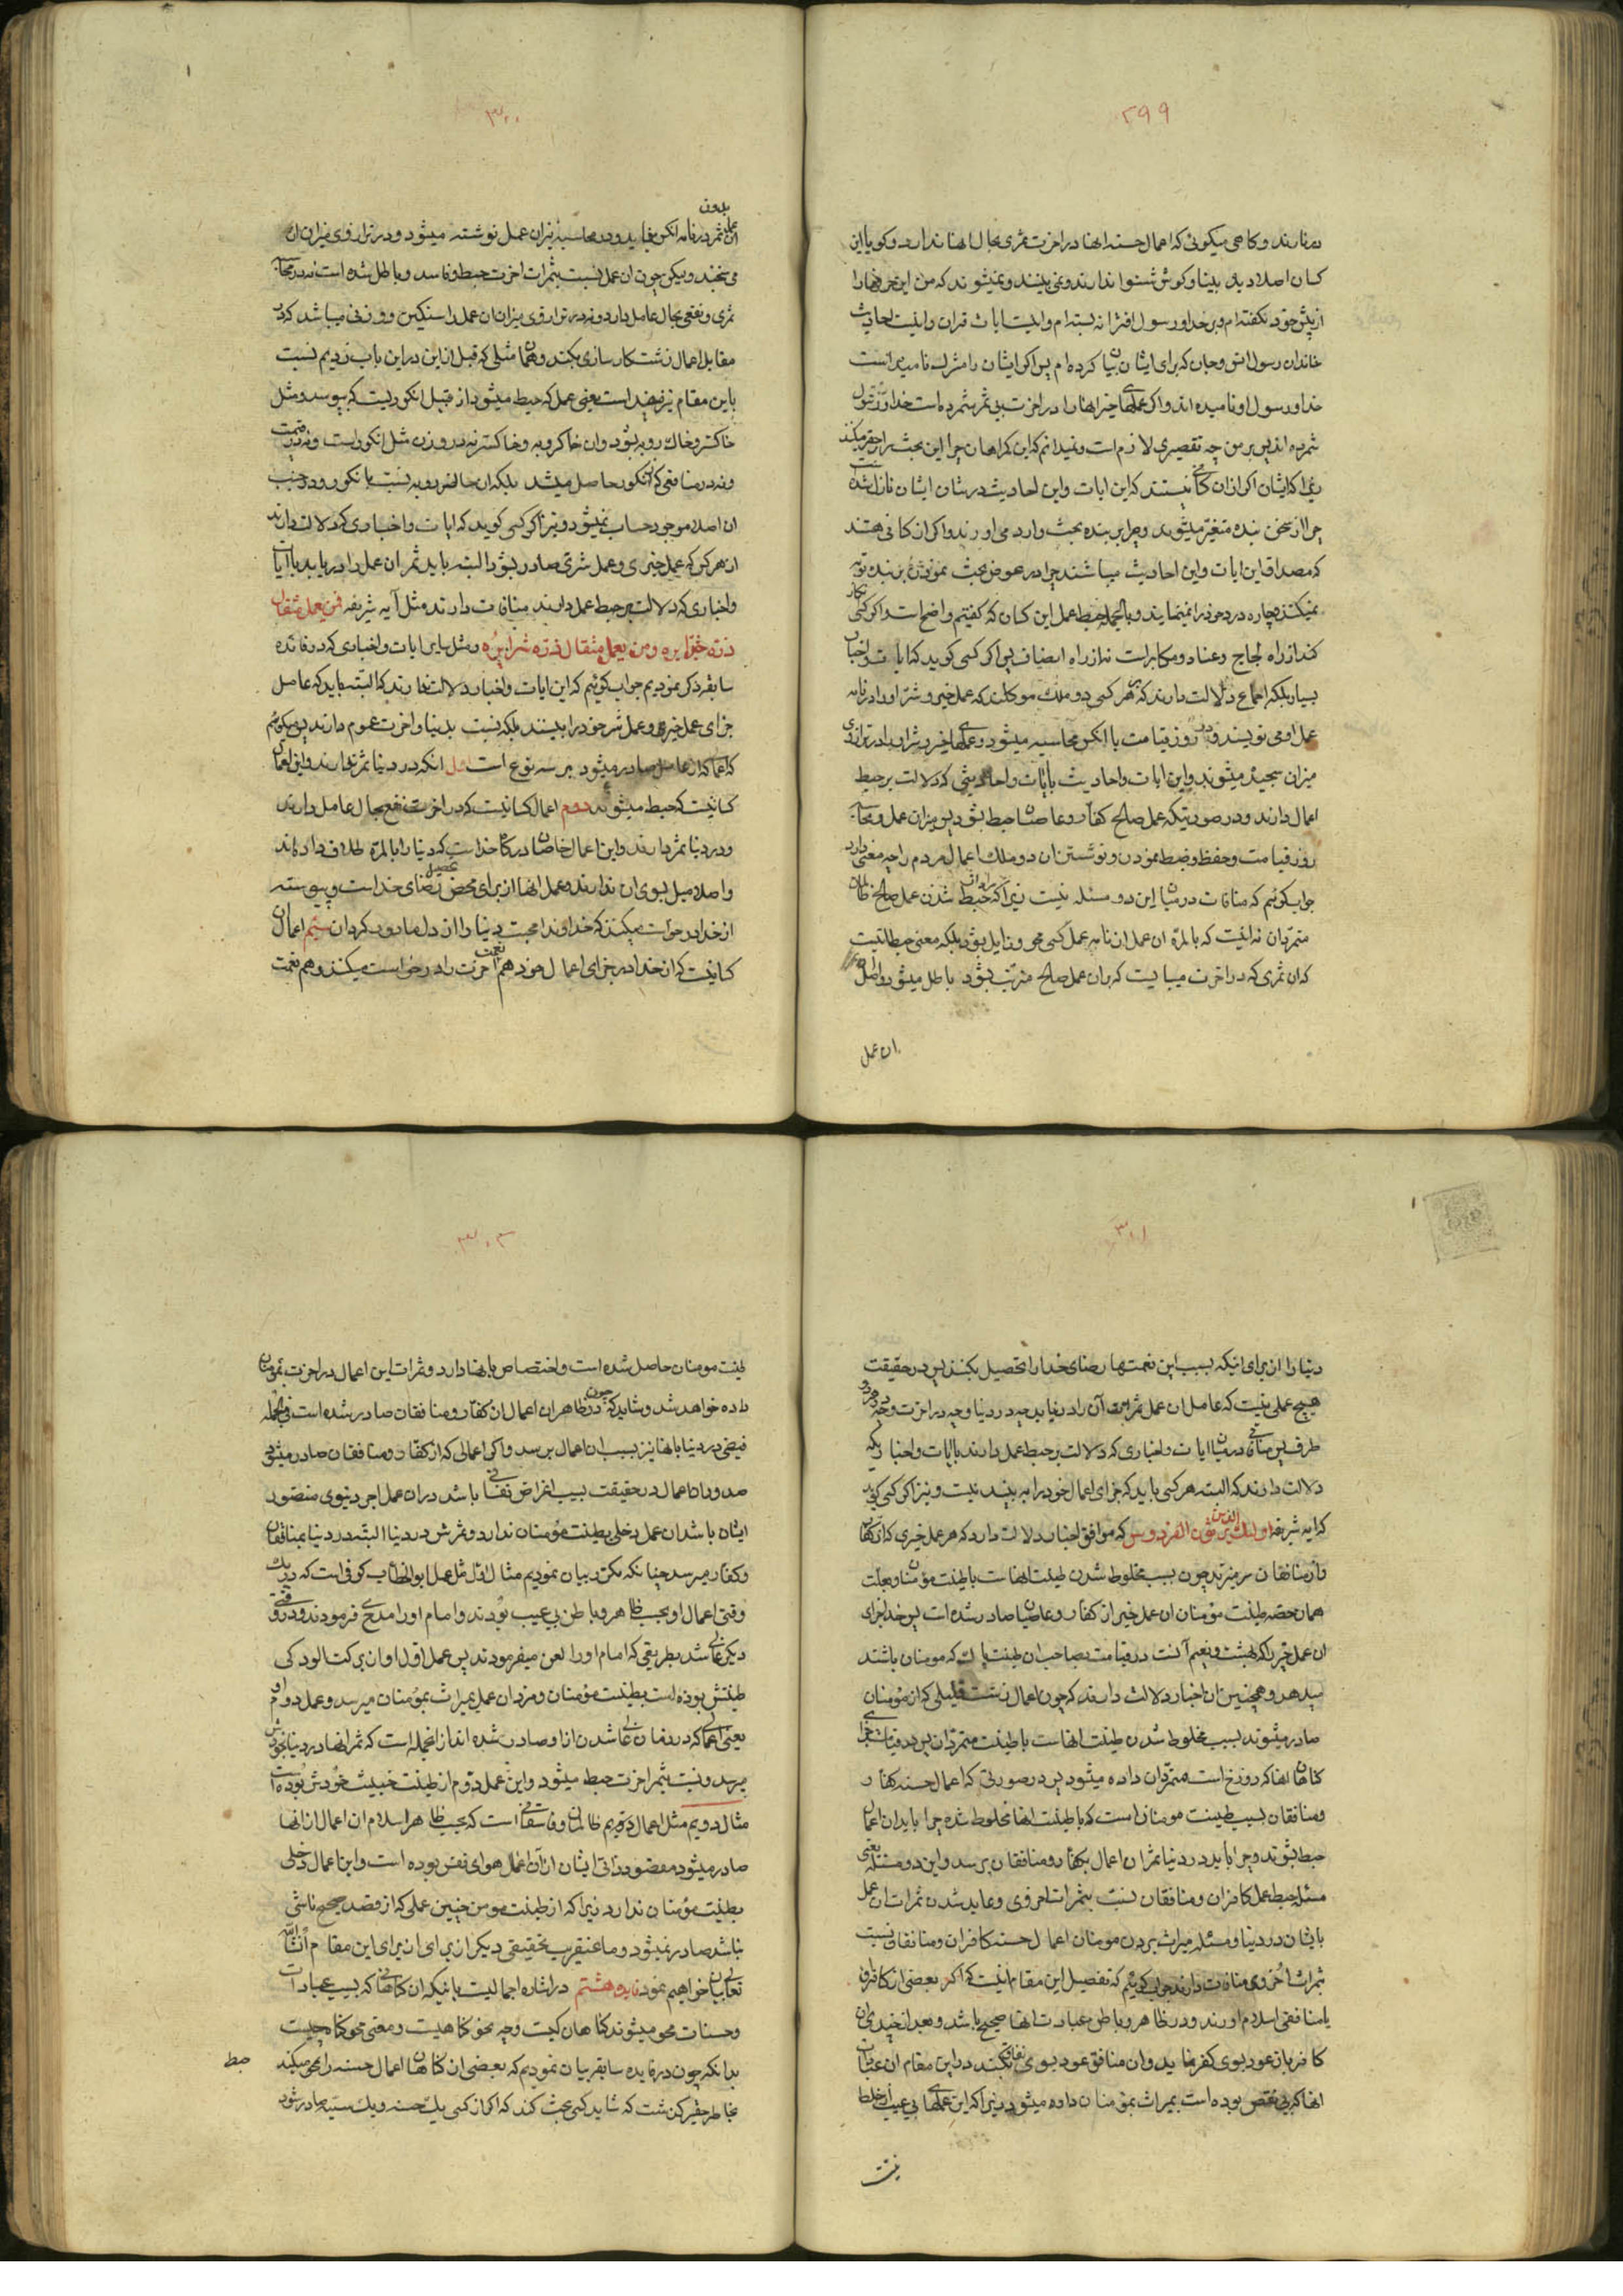 ۲۹۹
ندارند و کاهی میکوئی که اعمال حسنه اینها در اخرت ثمری بحال اینها ندارد و کویا این
کسان اصلا دیده بینا و کوش شنوا ندارند و نمی بینند و نمیشنوند که من این حرفها را
از پیش خود نکفته ام و بر خدا و رسول افترا نه بسته ام و اینست ایات قران و اینست احادیث
خاندان رسول انس و جان که برای ایشان بیان کرده ام پس اکر ایشان را مشرک نامیده است
خدا و رسول او نامیده اند و اکر عملهای خیر اینها را در اخرت بی ثمر شمرده است خدا و رسول
شمرده اند پس بر من چه تقصیری لازم است و نمیدانم که این کمراهان چرا این بحث را بر حقیر میکنند
زیرا که ایشان اکر از ان کسانی نیستند که این ایات و این احادیث در شان ایشان نازل شده است
چرا از سخن بنده متغیر میشوند و چرا بر بنده بحث وارد می اورند و اکر از کسانی هستند
که مصداق این ایات و این احادیث میباشند چرا در عوض بحث نمودن بر بنده توبه
نمیکنند و چاره درد خود را نمینمایند و بالجمله حبط عمل این کسان که کفتیم واضح است و اکر کسی انکار
کند از راه لجاج و عناد و مکابره است نه از راه انصاف پس اکر کسی کوید که ایات و اخبار
بسیار بلکه اجماع دلالت دارند که بر هر کسی دو ملک موکلند که عمل خیر و شر او را در نامه
عمل او می نویسند و در روز قیامت با انکس محاسبه میشود و عملهای خیر و شر او را در ترازوی
میزان سنجیده میشوند و این ایات و احادیث با ایات و احادیثی که دلالت بر حبط
اعمال دارند و در صورتیکه عمل صالح کفار و عاصیان حبط بشود پس میزان عمل و محاسبه
روز قیامت و حفظ و ضبط نمودن و نوشتن ان دو ملک اعمال مردم را چه معنی دارد
جواب کوئیم که منافات در میان این دو مسئله نیست زیرا که مراد از حبط شدن عمل صالح ظالمان
متمردان نه اینست که بالمره ان عمل از نامه عمل کسی محو و زایل بشود بلکه معنی حبط انیست
که ان ثمری که در اخرت میبایست که بر ان عمل صالح مترتب بشود باطل میشود و اصل
ان عمل
۳۰۰
ان عمل بدون ثمر در نامه انکس میماند و در محاسبه نیز ان عمل نوشته میشود و در ترازوی میزان ان را
می سنجند و لیکن چون ان عمل نسبت بثمرات اخرت حبط و فاسد و باطل شده است نه در محاسبه
ثمری و نفعی بحال عامل دارد و نه در ترازوی میزان ان عمل را سنکینی و وزنی میباشد که در
مقابل اعمال زشت کارسازی بکند و همان مثلی که قبل از این در این باب زدیم نسبت
باین مقام نیز مفید است یعنی عمل که حبط میشود از قبیل انکوریست که بپوسد و مثل
خاکستر و خاک روبه بشود و ان خاکروبه و خاکستر نه در وزن مثل انکور است و نه در قیمت
و نه در منافعی که از انکور حاصل میشد بلکه ان خاکروبه نسبت بانکور وجود
ان اصلا موجود حساب نمیشود و نیز اکر کسی کوید که ایات و اخباری که دلالت دارند
از هر کس که عمل خیری و عمل شری صادر بشود البته باید ثمر ان عمل را دریابد با ایات
و اخباری که دلالت بر حبط عمل دارند منافات دارند مثل آیه شریفه فمن یعمل مثقال
ذرة خیرا یره ومن یعمل مثقال ذرة شرا یره و مثل سایر ایات و اخباری که در فائده
سابقه ذکر نمودیم جواب کوئیم که این ایات و اخبار دلالت ندارند که البته باید که عامل
جزای عمل خیر و عمل شر خود را ببیند بلکه نسبت بدنیا و اخرت عموم دارند پس میکوئیم
که اعمال که از عامل صادر میشود بر سه نوع است اول انکه در دنیا ثمر ندارند و این اعمال
کسانیست که حبط میشوند دوم اعمال کسانیست که در اخرت نفع بحال عامل دارند
و در دنیا ثمر ندارند و این اعمال خاصان درکاه خداست که دنیا را بالمره طلاق داده اند
و اصلا میل بسوی ان ندارند و عمل انها از برای محض تحصیل رضای خداست و پیوسته
از خدا درخواست میکنند که خداوندا محبت دنیا را از دل ما دور کردان سیم اعمال
کسانیست که از خدا در جزای اعمال خود هم نعمت اخرت را درخواست میکنند و هم نعمت
۳۰۱
دنیا را از برای اینکه بسبب این نعمتها رضای خدا را تحصیل بکنند پس در حقیقت
هیچ عملی نیست که عامل ان عمل ثمرات آن را درنیابد چه در دنیا و چه در اخرت و چه در هر دو
طرف پس منافاتی در میان ایات و اخباری که دلالت بر حبط عمل دارند با ایات و اخباریکه
دلالت دارند که البته هر کسی باید که جزای اعمال خود را به بیند نیست و نیز اکر کسی کوید
که ایه شریفه اولئک الذین یرثون الفردوس که موافق اخبار دلالت دارد که هر عمل خیری که از کفار
و از منافقان سر میزند چون بسبب مخلوط شدن طینت انهاست با طینت مؤمنان و بعلت
همان حصه طینت مؤمنان ان عمل خیر از کفار و عاصیان صادر شده است پس خدا جزای
ان عمل خیر را که بهشت و نعیم آنست در قیامت بصاحبان طینت پاک که مومنان باشند
میدهد و همچنین ان اخبار دلالت دارند که چون اعمال زشت قلیلی که از مؤمنان
صادر میشوند بسبب مخلوط شدن طینت انهاست با طینت متمردان پس در قیامت جزای
کناهان انها که دوزخ است بمتمردان داده میشود پس در صورتی که اعمال حسنه کفار
و منافقان بسبب طینت مومنان است که با طینت انها مخلوط شده چرا باید ان اعمال
حبط بشوند و چرا باید در دنیا ثمر ان اعمال بکفار و منافقان برسد و این دو مسئله یعنی
مسئله حبط عمل کافران و منافقان نسبت بثمرات اخروی و عاید شدن ثمرات ان عمل
بایشان در دنیا و مسئله میراث بردن مومنان اعمال حسنه کافران و منافقان نسبت
بثمرات اخروی منافات دارند جواب کوئیم که تفصیل این مقام اینست که اکر بعضی از کافران
یا منافقی اسلام اورند و در ظاهر و باطن عبادت انها صحیح باشد و بعد از چندی ان
کافر باز عود بسوی کفر نماید و ان منافق عود بسوی نفاق بکند در این مقام ان عبادات
انها که بی نقص بوده است بمیراث بمؤمنان داده میشود زیرا که این عملهای بی عیب از خلط
طینت
۳۰۲
طینت مومنان حاصل شده است و اختصاص بانها دارد و ثمرات این اعمال در اخرت بمومنان
داده خواهد شد و شاید که چون در ظاهر ان اعمال از کفار و منافقان صادر شده است فی الجمله
فیضی در دنیا بانها نیز بسبب ان اعمال برسد و اکر اعمالی که از کفار و منافقان صادر میشود
صدور ان اعمال در حقیقت بسبب اغراض نفسانی باشد و در ان عمل اجر دنیوی منظور
ایشان باشد ان عمل دخلی بطینت مؤمنان ندارد و ثمرش در دنیا البته در دنیا بمنافقان
و کفار میرسد چنانکه مکرر بیان نمودیم مثال اول مثل عمل ابوالخطاب کوفی است که در یک
وقتی اعمال او بحسب ظاهر و باطن بی عیب بودند و امام او را مدح فرمودند و در وقتی
دیکر غالی شد بطریقی که امام او را لعن میفرمودند پس عمل اول او از برکت الودکی
طینتش بوده است بطینت مؤمنان و مزد ان عمل بمیراث بمؤمنان میرسد و عمل دوم او
یعنی اعمالی که در زمان غالی شدن از او صادر شده اند از انجمله است که ثمر انها در دنیا بخودش
میرسد و نسبت بثمر اخرت حبط میشود و این عمل دوم از طینت خبیث خودش بوده است
مثال دویم مثل اعمال ظالمان و فاسقانی است که بحسب ظاهر اسلام ان اعمال از انها
صادر میشود و مقصود ذاتی ایشان از آن اعمال هوای نفس بوده است و این اعمال دخلی
بطینت مؤمنان ندارد زیرا که از طینت مومن چنین عملی که از قصد صحیح ناشی
نباشد صادر نمیشود و ما عنقریب تحقیقی دیکر از برای ان برای این مقام انشاء الله
تعالی بیان خواهیم نمود فایده هشتم در اشاره اجمالیست باینکه ان کناهانی که بسبب عبادات
و حسنات محو میشوند کناهان کیست و چه نحو کناهیست و معنی محو کناه چیست
بدانکه چون در فایده سابقه بیان نمودیم که بعضی از کناهان اعمال حسنه را محو میکند
حبط
بخاطر حقیر کذشت که شاید کسی بحث کند که اکر از کسی یک حسنه و یک سیئه صادر شود